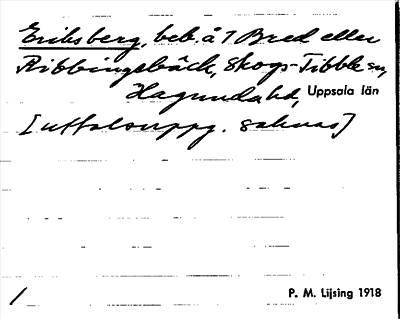 Eriksberg, beb. å 7 Bred eller
Ribbingsbäck, Skogs-Tibble sn,
Hagunda hd, Uppsala län
[uttalsuppg. saknas]
/ P. M. Lijsing 1918